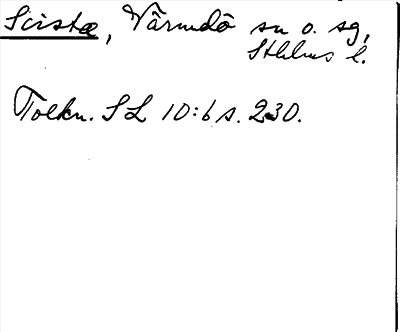 Sirista, Värmdö sn o. sg,
Sthlms l.
Tolkn. SL 10:6 s. 230.